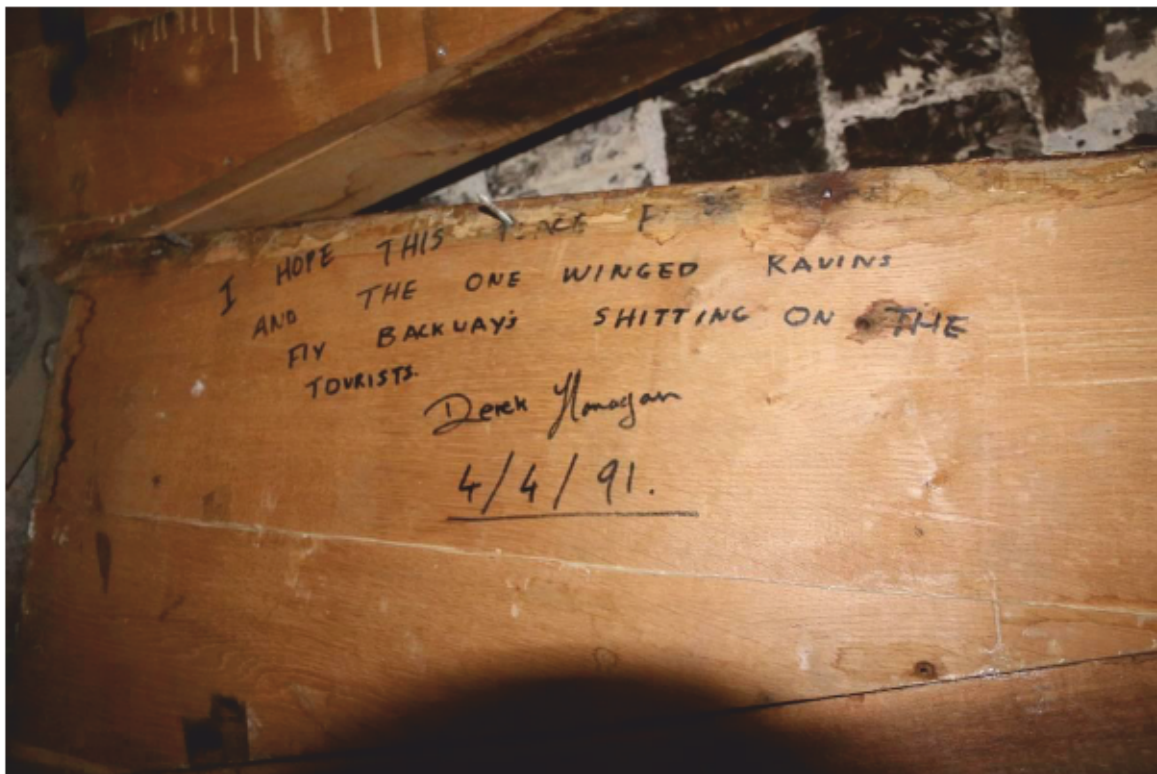 I HOPE THIS PLACE
AND THE ONE WINGED RAVINS
FlY BACKWAY'S SHITTING ON THE
TOURISTS.
Derek
4/4/91.